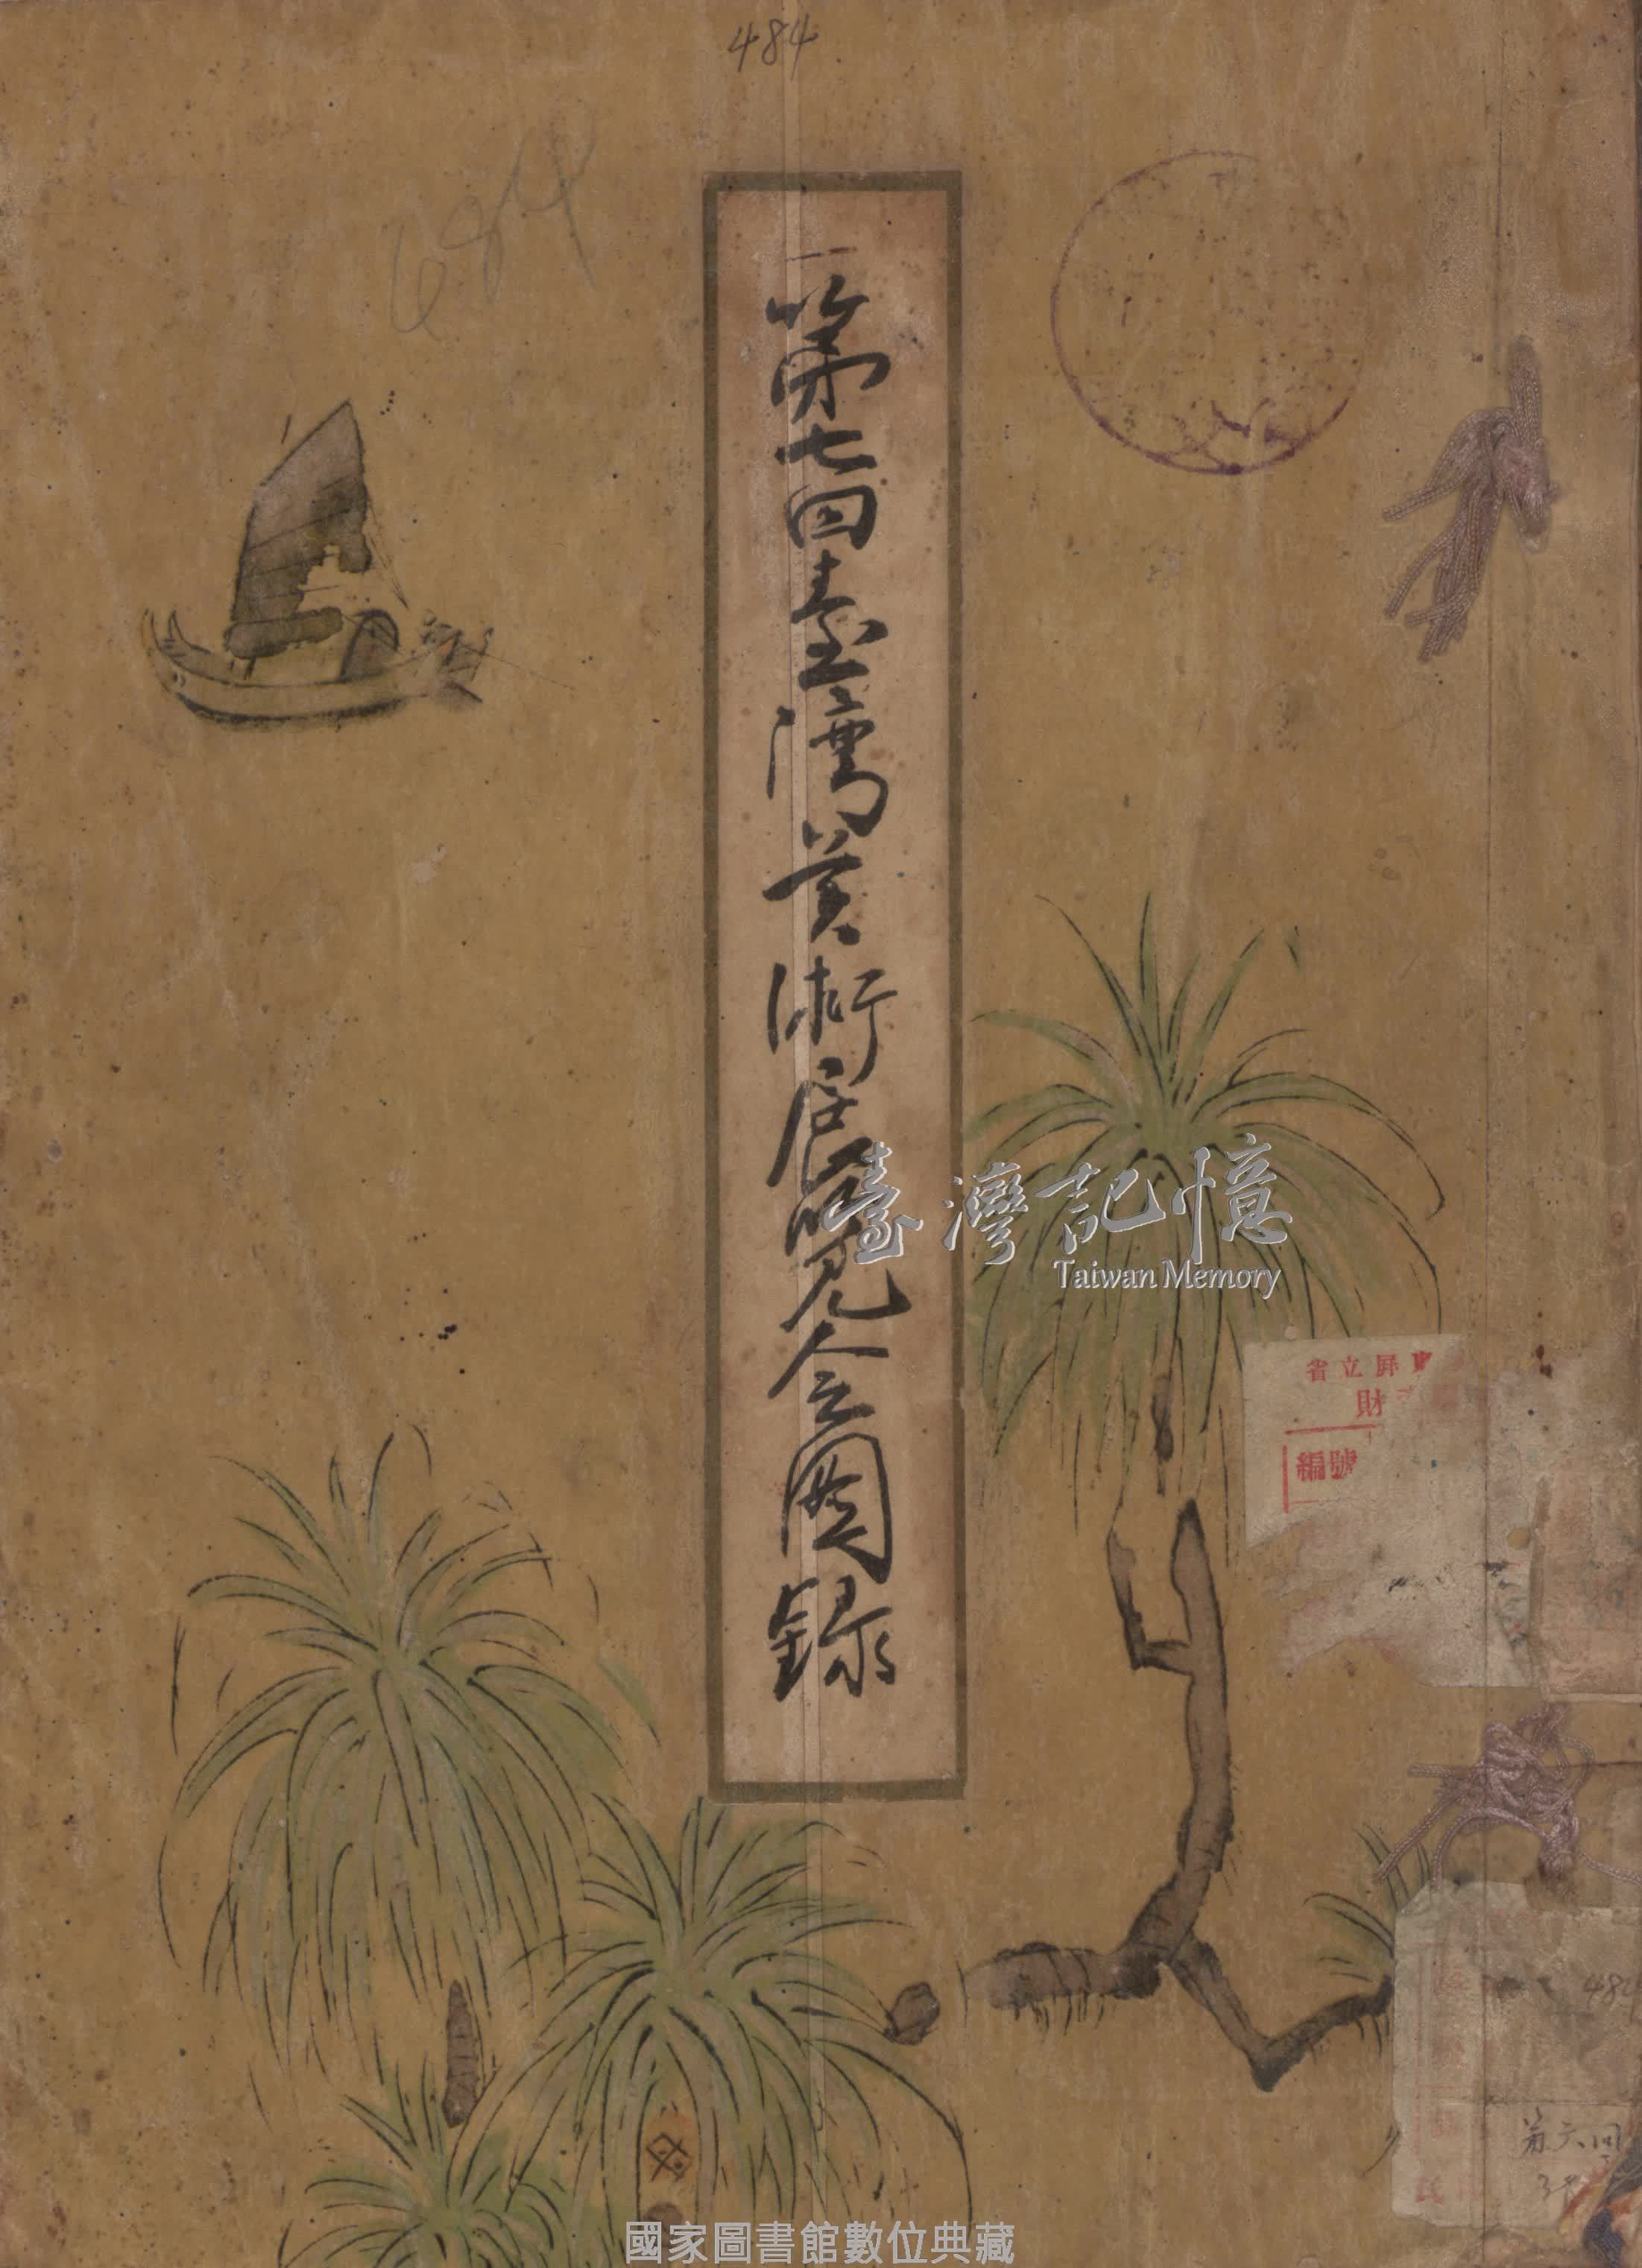 484
684
第七回臺灣美術展覽會圖錄
臺灣記憶
Taiwan Memory
省立屏東
財
編號
484
第六回
國家圖書館數位典藏